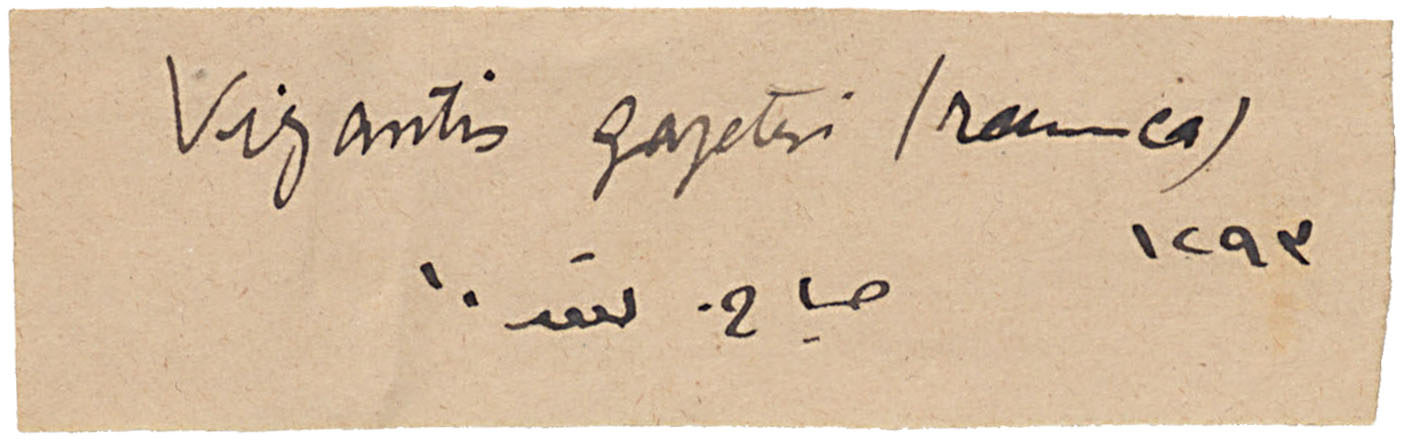 Vizantis gazetesi (rumca)
١٢٩٣
صباح ١٠